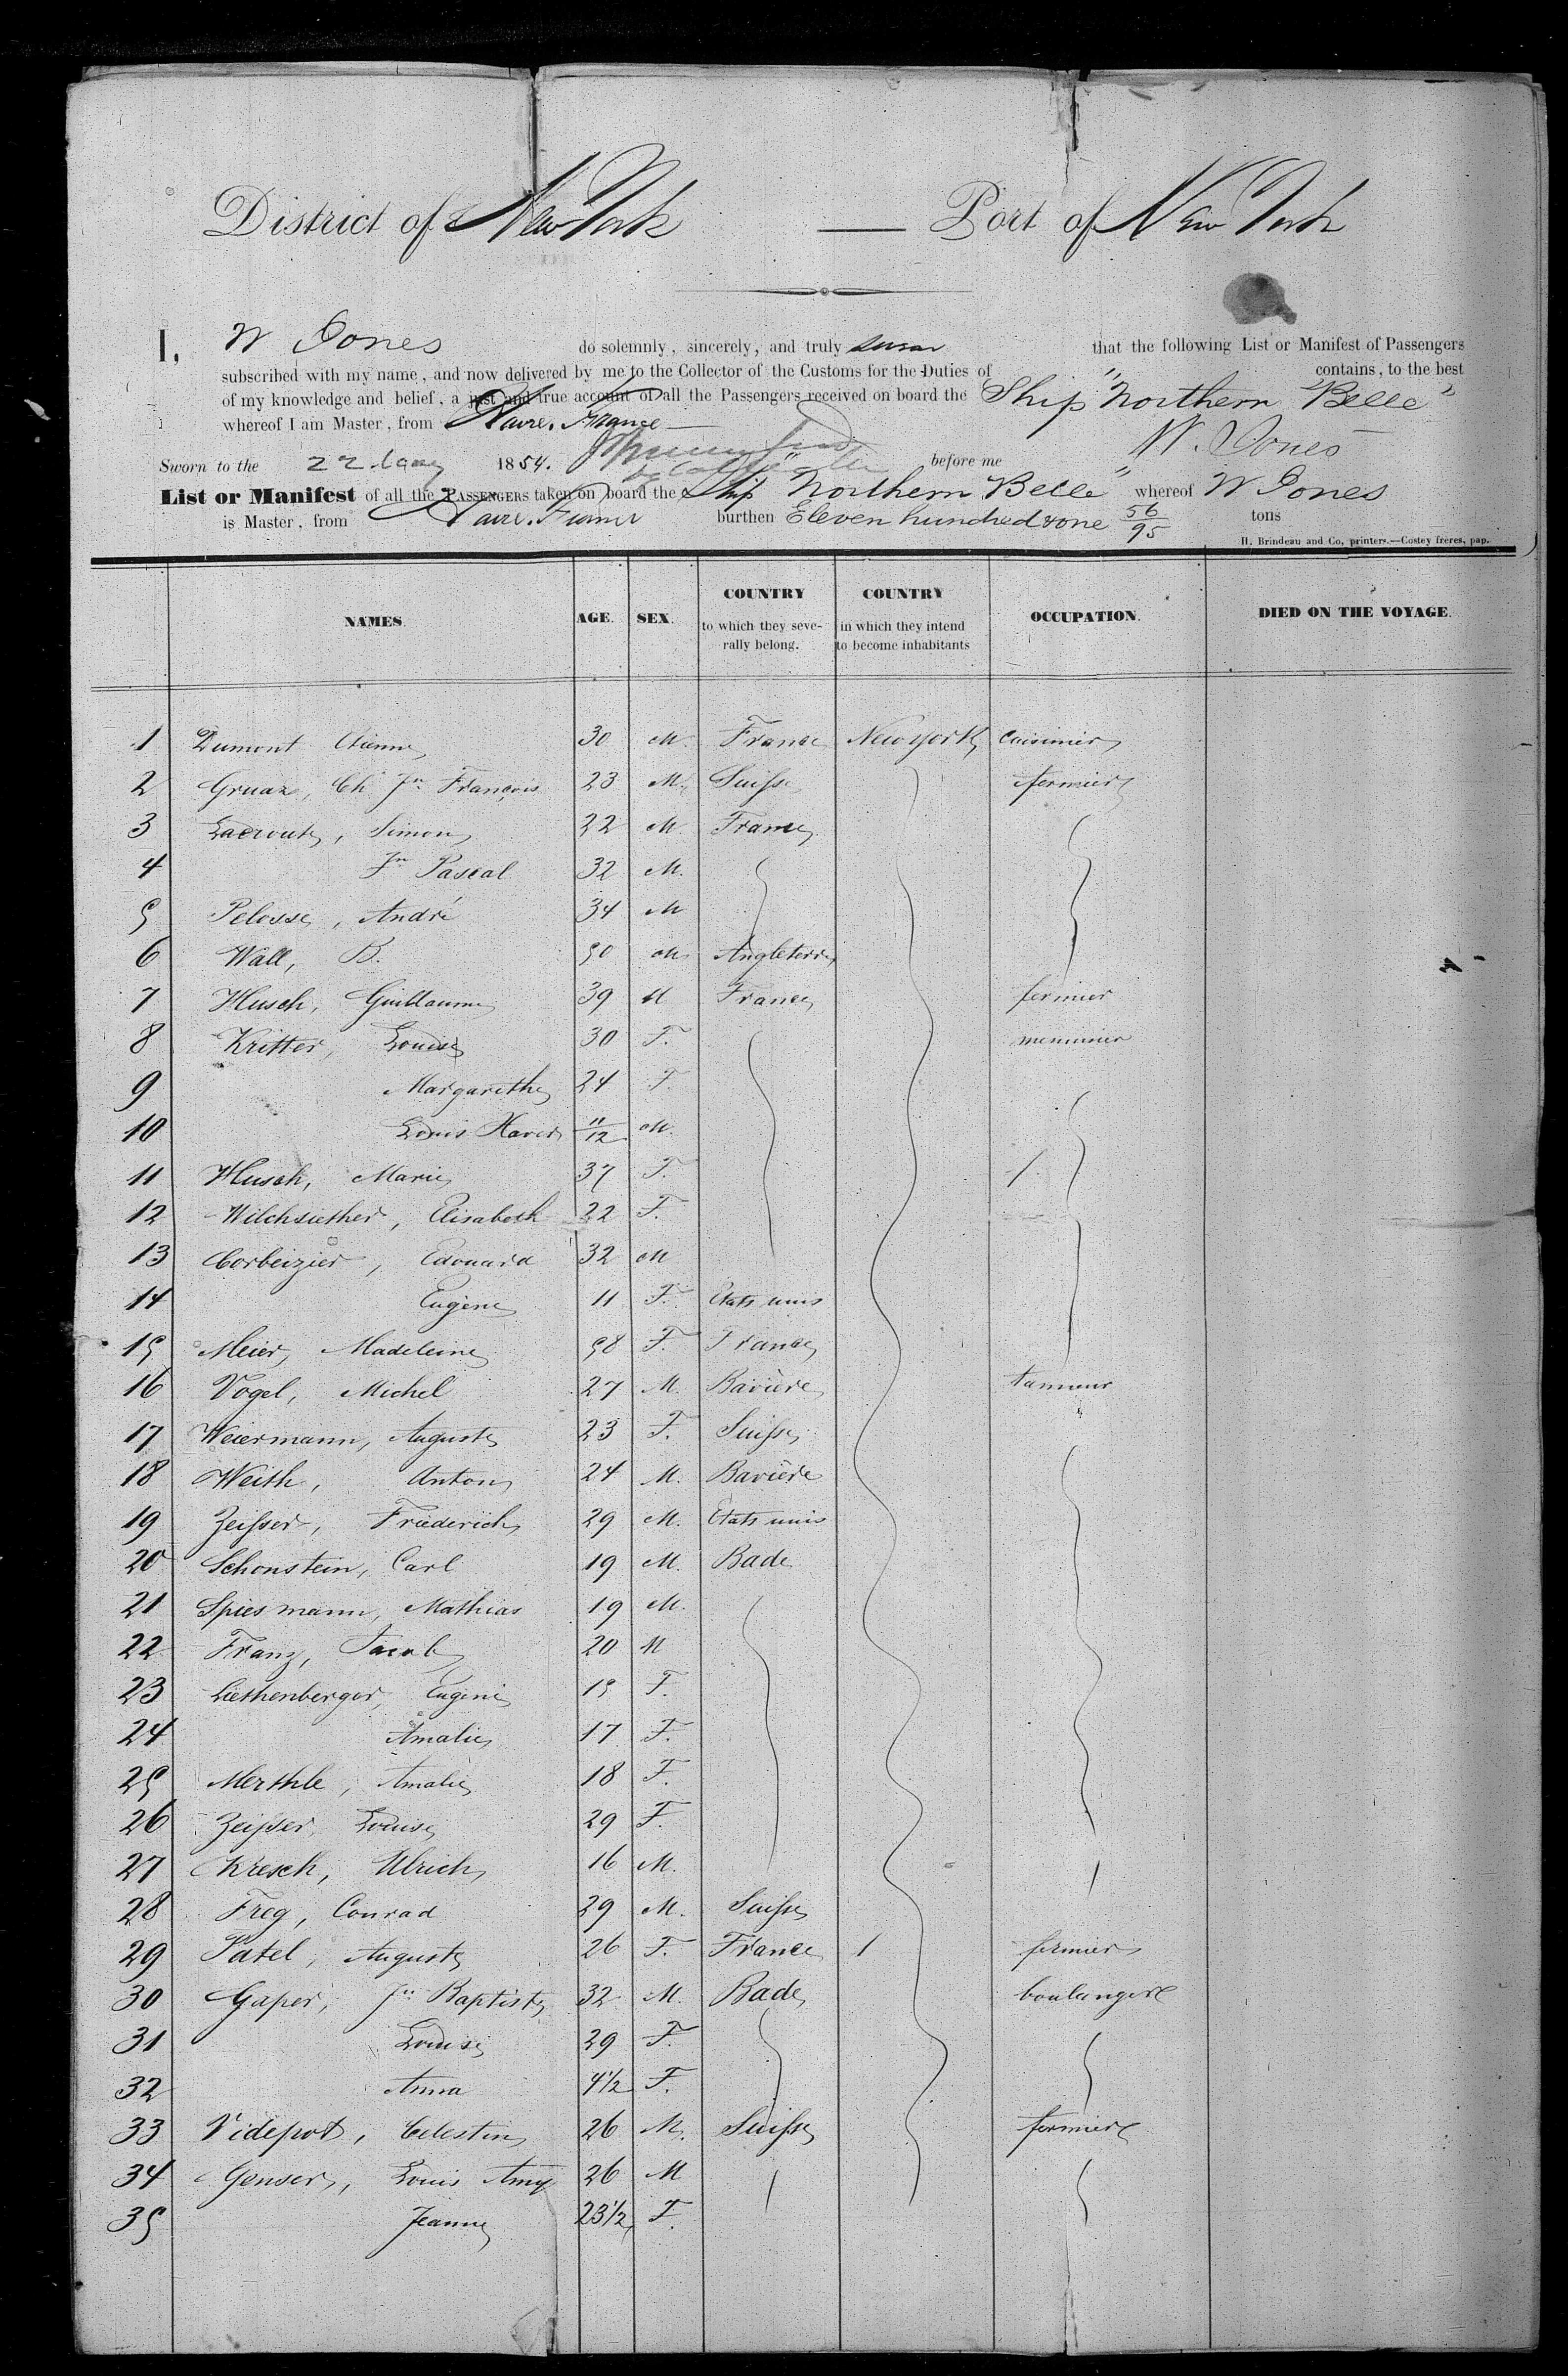 District of New York — Port of New York
I, W Jones do solemnly, sincerely, and truly swear that the following List or Manifest of Passengers
subscribed with my name, and now delivered by me to the Collector of the Customs for the Duties of contains, to the best
of my knowledge and belief, a just and true account of all the Passengers received on board the Ship "Northern Belle"
whereof I am Master, from Havre. France
W. Jones
Sworn to the 22 1854. before me
List or Manifest of all the PASSENGERS taken on board the Ship "Northern Belle" whereof W Jones
is Master, from Havre. burthen Eleven hundred & one 56/95 tons
H. Brindeau and Co, printers.—Costey frères, pap.
NAMES. AGE. SEX. COUNTRY to which they severally belong. COUNTRY in which they intend to become inhabitants OCCUPATION. DIED ON THE VOYAGE.
1 Dumont Etienne 30 M. France New York cuisinier
2 Gruaz, Ch Jn François 23 M. Suisse fermier
3 Lacroute, Simon 22 M. France
4 Jn Pascal 32 M.
5 Pelosse, André 34 M
6 Wall, B. 50 M Angleterre
7 Husch, Guillaume 39 M France fermier
8 Kritter, Louise 30 F. menuisier
9 Margarethe 24 F.
10 Louis Xaver 11/12 M.
11 Husch, Marie 37 F.
12 Elisabeth 22 F.
13 Corbeizier, Edouard 32 M
14 Eugène 11 F. Etats unis
15 Meier, Madeleine 58 F. France
16 Vogel, Michel 27 M. Bavière tanneur
17 Weiermann, Auguste 23 F. Suisse
18 Weith, Anton 24 M. Bavière
19 Zeisser, Friederich 29 M. Etats unis
20 Schonstein, Carl 19 M. Bade
21 Spiesmann, Mathias 19 M.
22 Franz, Jacob 20 M
23 Liethenberger, Eugenie 15 F.
24 Amalie 17 F.
25 Merthle, Amalie 18 F.
26 Zeisser, Louise 29 F.
27 Kresch, Ulrich 16 M.
28 Freg, Conrad 29 M. Suisse
29 Patel, Auguste 26 F. France fermier
30 Gaper, Jn Baptiste 32 M. Bade boulanger
31 Louise 29 F.
32 Anna 4 1/2 F.
33 Videpot, Celestin 26 M. Suisse fermier
34 Genser, Louis Amy 26 M
35 Jeanne 23 1/2 F.